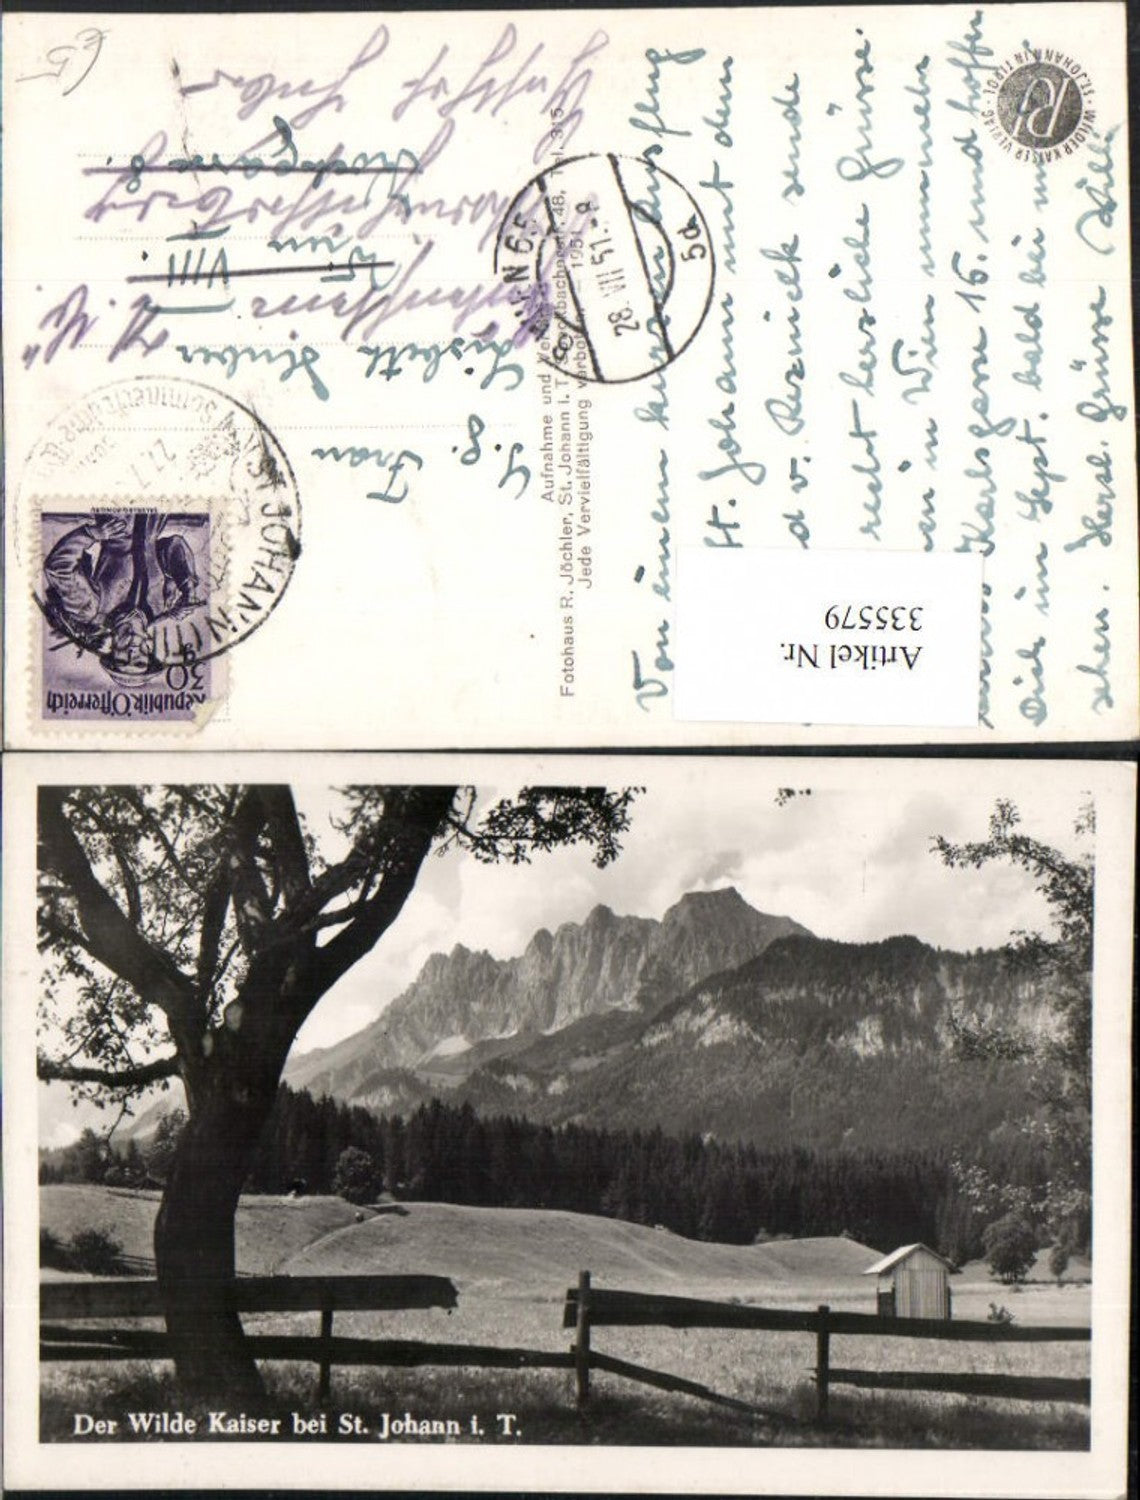 Von einem kurzen Ausflug
St. Johann mit dem
d v. Reznicek sende
recht herzliche Grüsse.
in Wien nunmehr
Karlsgasse 16. und hoffen
Dich im Sept. bald bei uns
sehen. Herzl. Grüsse Willi
Artikel Nr.
335579
ST. JOHANN IN TIROL · WILDER KAISER VERLAG ·
RJ
Aufnahme und Verlag
Fotohaus R. Jöchler, St. Johann i. T., Speckbacherstr. 48, Tel. 315
Jede Vervielfältigung verboten 1951
S. g. Frau
Lisbeth Huber
Wien VIII.
Gasthof Huber
28. VII 51.-8
5d
ST. JOHANN (TIROL)
Republik Österreich
30 g
SALZBURG, PONGAU
€5
Der Wilde Kaiser bei St. Johann i. T.